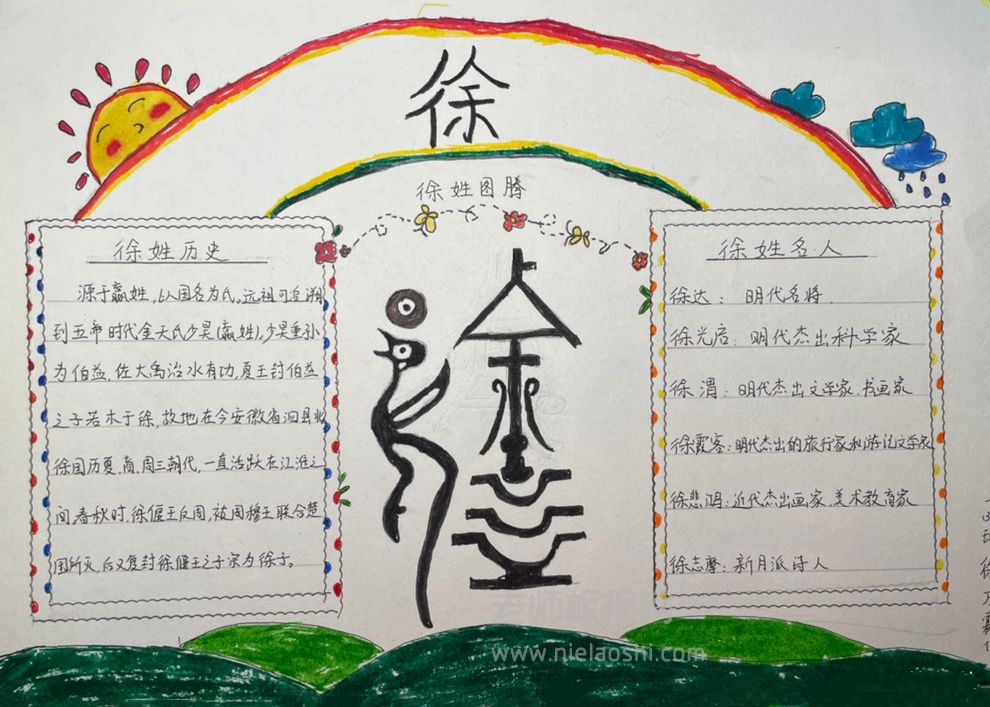 徐
徐姓图腾
徐姓历史
源于嬴姓,以国名为氏,远祖可追溯
到五帝时代金天氏少昊(嬴姓),少昊重孙
为伯益,佐大禹治水有功,夏王封伯益
之子若木于徐,故地在今安徽省泗县北
徐国历夏.商.周三朝代,一直活跃在江淮之
间,春秋时,徐偃王反周,被周穆王联合楚
国所灭,后又复封徐偃王之子宗为徐子。
徐姓名人
徐达:明代名将.
徐光启:明代杰出科学家
徐渭:明代杰出文学家.书画家
徐霞客:明代杰出的旅行家和游记文学家
徐悲鸿:近代杰出画家.美术教育家
徐志摩:新月派诗人
www.nielaoshi.com